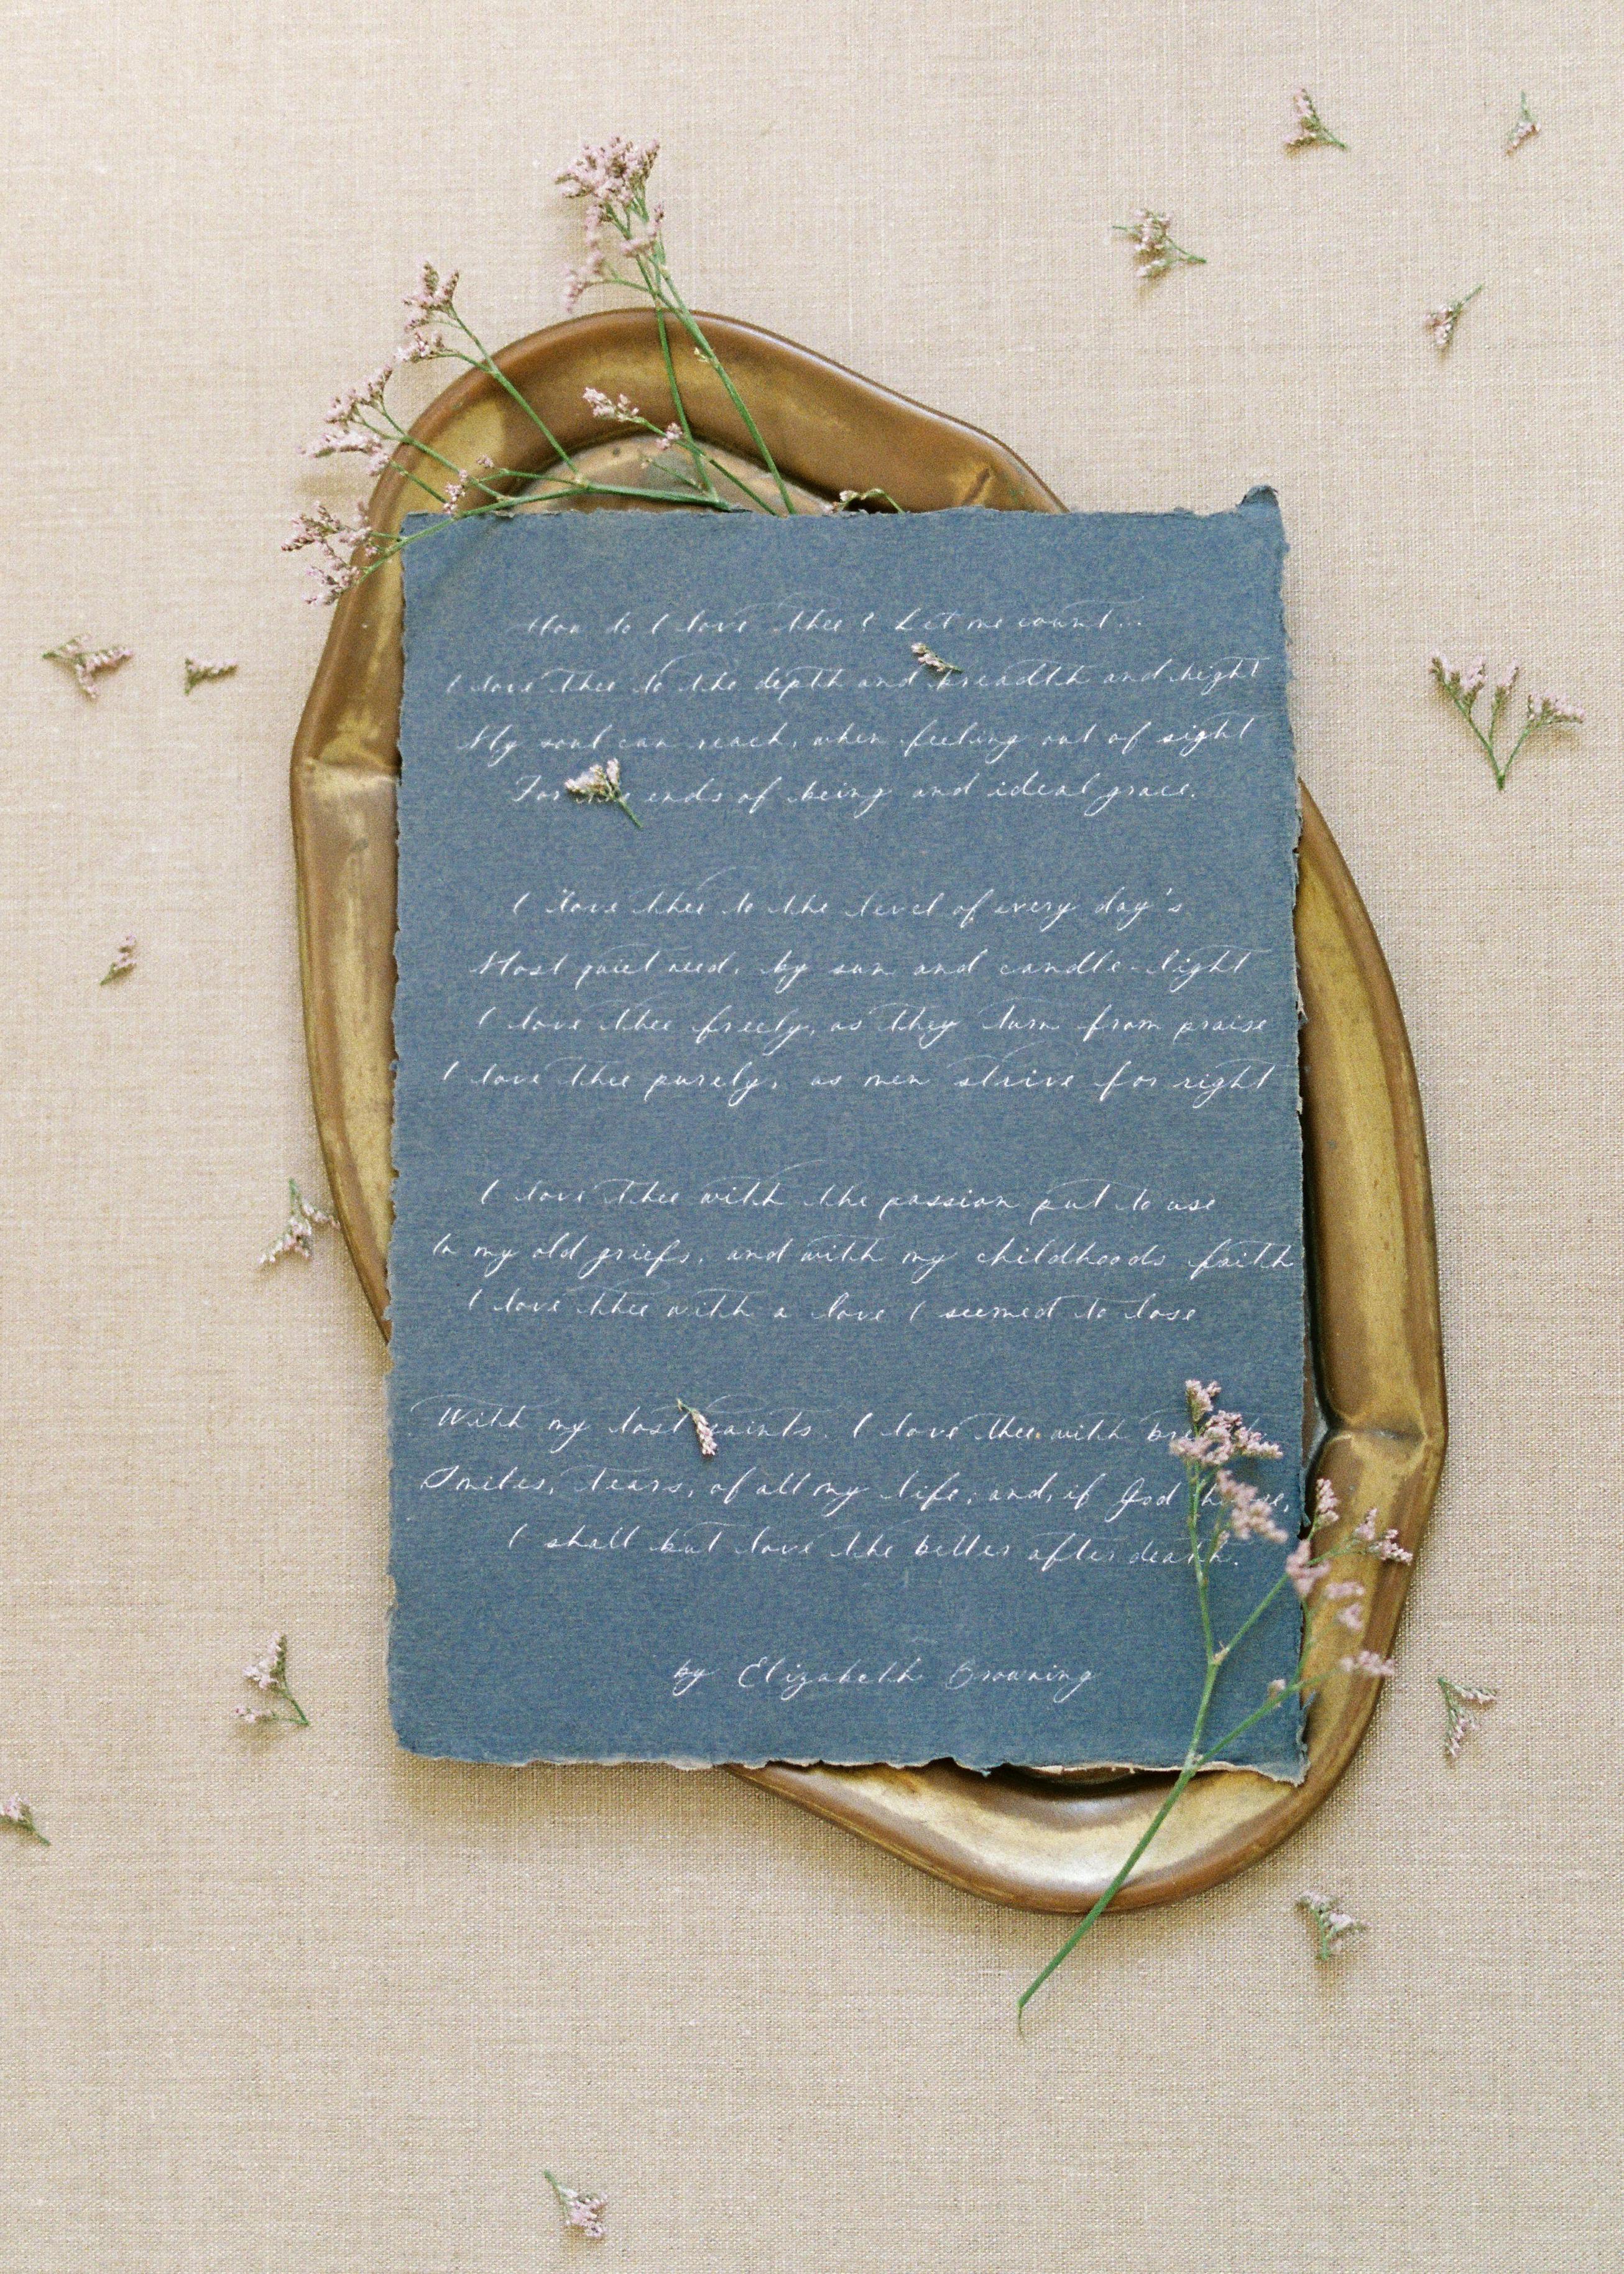 How do I love thee? Let me count...
I love thee to the depth and breadth and hight
My soul can reach, when feeling out of sight
For ends of being and ideal grace.
I love thee to the level of every day's
Most quiet need, by sun and candle-light
I love thee freely, as they turn from praise
I love thee purely, as men strive for right
I love thee with the passion put to use
In my old griefs, and with my childhoods faith
I love thee with a love I seemed to lose
With my lost saints. I love thee with
Smiles, tears, of all my life; and, if God
I shall but love the better after death.
by Elizabeth Browning